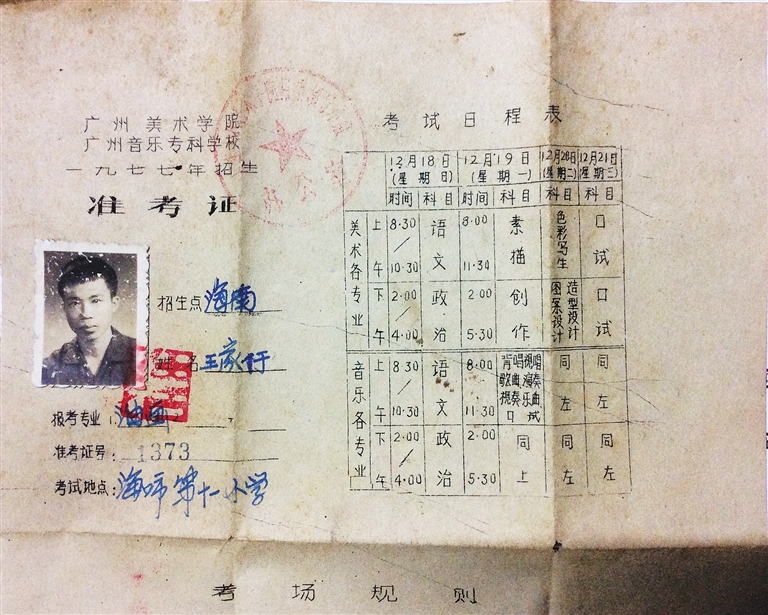 广州美术学院
广州音乐专科学校
一九七七年招生
准考证
招生点 海南
姓名 王家行
报考专业: 油画
准考证号: 1373
考试地点: 海口市第十一小学
考试日程表
12月18日(星期日) 12月19日(星期一) 12月20日(星期二) 12月21日(星期三)
时间 科目 时间 科目 科目 科目
美术各专业 上午 8.30/10.30 语文 8.00 11.30 素描 色彩写生 口试
下午 2.00/4.00 政治 2.00 5.30 创作 造型设计 图案设计 口试
音乐各专业 上午 8.30/10.30 语文 8.00 11.30 背唱视唱 歌曲演奏 视奏乐曲 口试 同左 同左
下午 2.00/4.00 政治 2.00 5.30 同上 同左 同左
考场规则